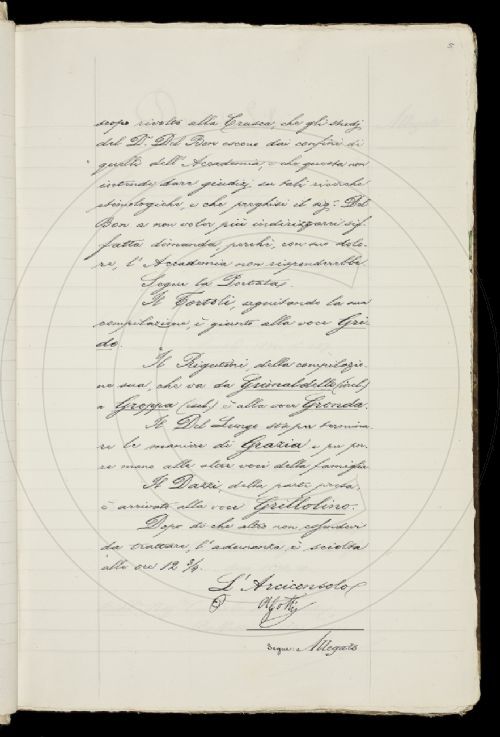 5
scopo rivolto alla Crusca, che gli studj
del Dr. Del Bon escono dai confini di
quelli dell'Accademia, e che questa non
intende dare giudizj su tali ricerche
etimologiche, e che preghisi il sig.r Del
Bon a non voler più indirizzarci sif-
fatte dimande, perchè, con suo dolo-
re, l'Accademia non risponderebbe.
Segue la Portata.
Il Tortoli, seguitando la sua
compilazione, è giunto alla voce Gri-
do.
Il Rigutini, della compilazio-
ne sua, che va da Grimaldello (incl.)
a Groppa (incl.) è alla voce Gronda.
Il Del Lungo sta per termina-
re le maniere di Grazia e
mano alle altre voci della famiglia
Il Dazzi, della parte
è arrivato alla voce Grillolino.
Dopo di che altro non essendovi
da trattare, l'adunanza è sciolta
alle ore 12 3/4.
L'Arciconsolo
Segue: Allegato